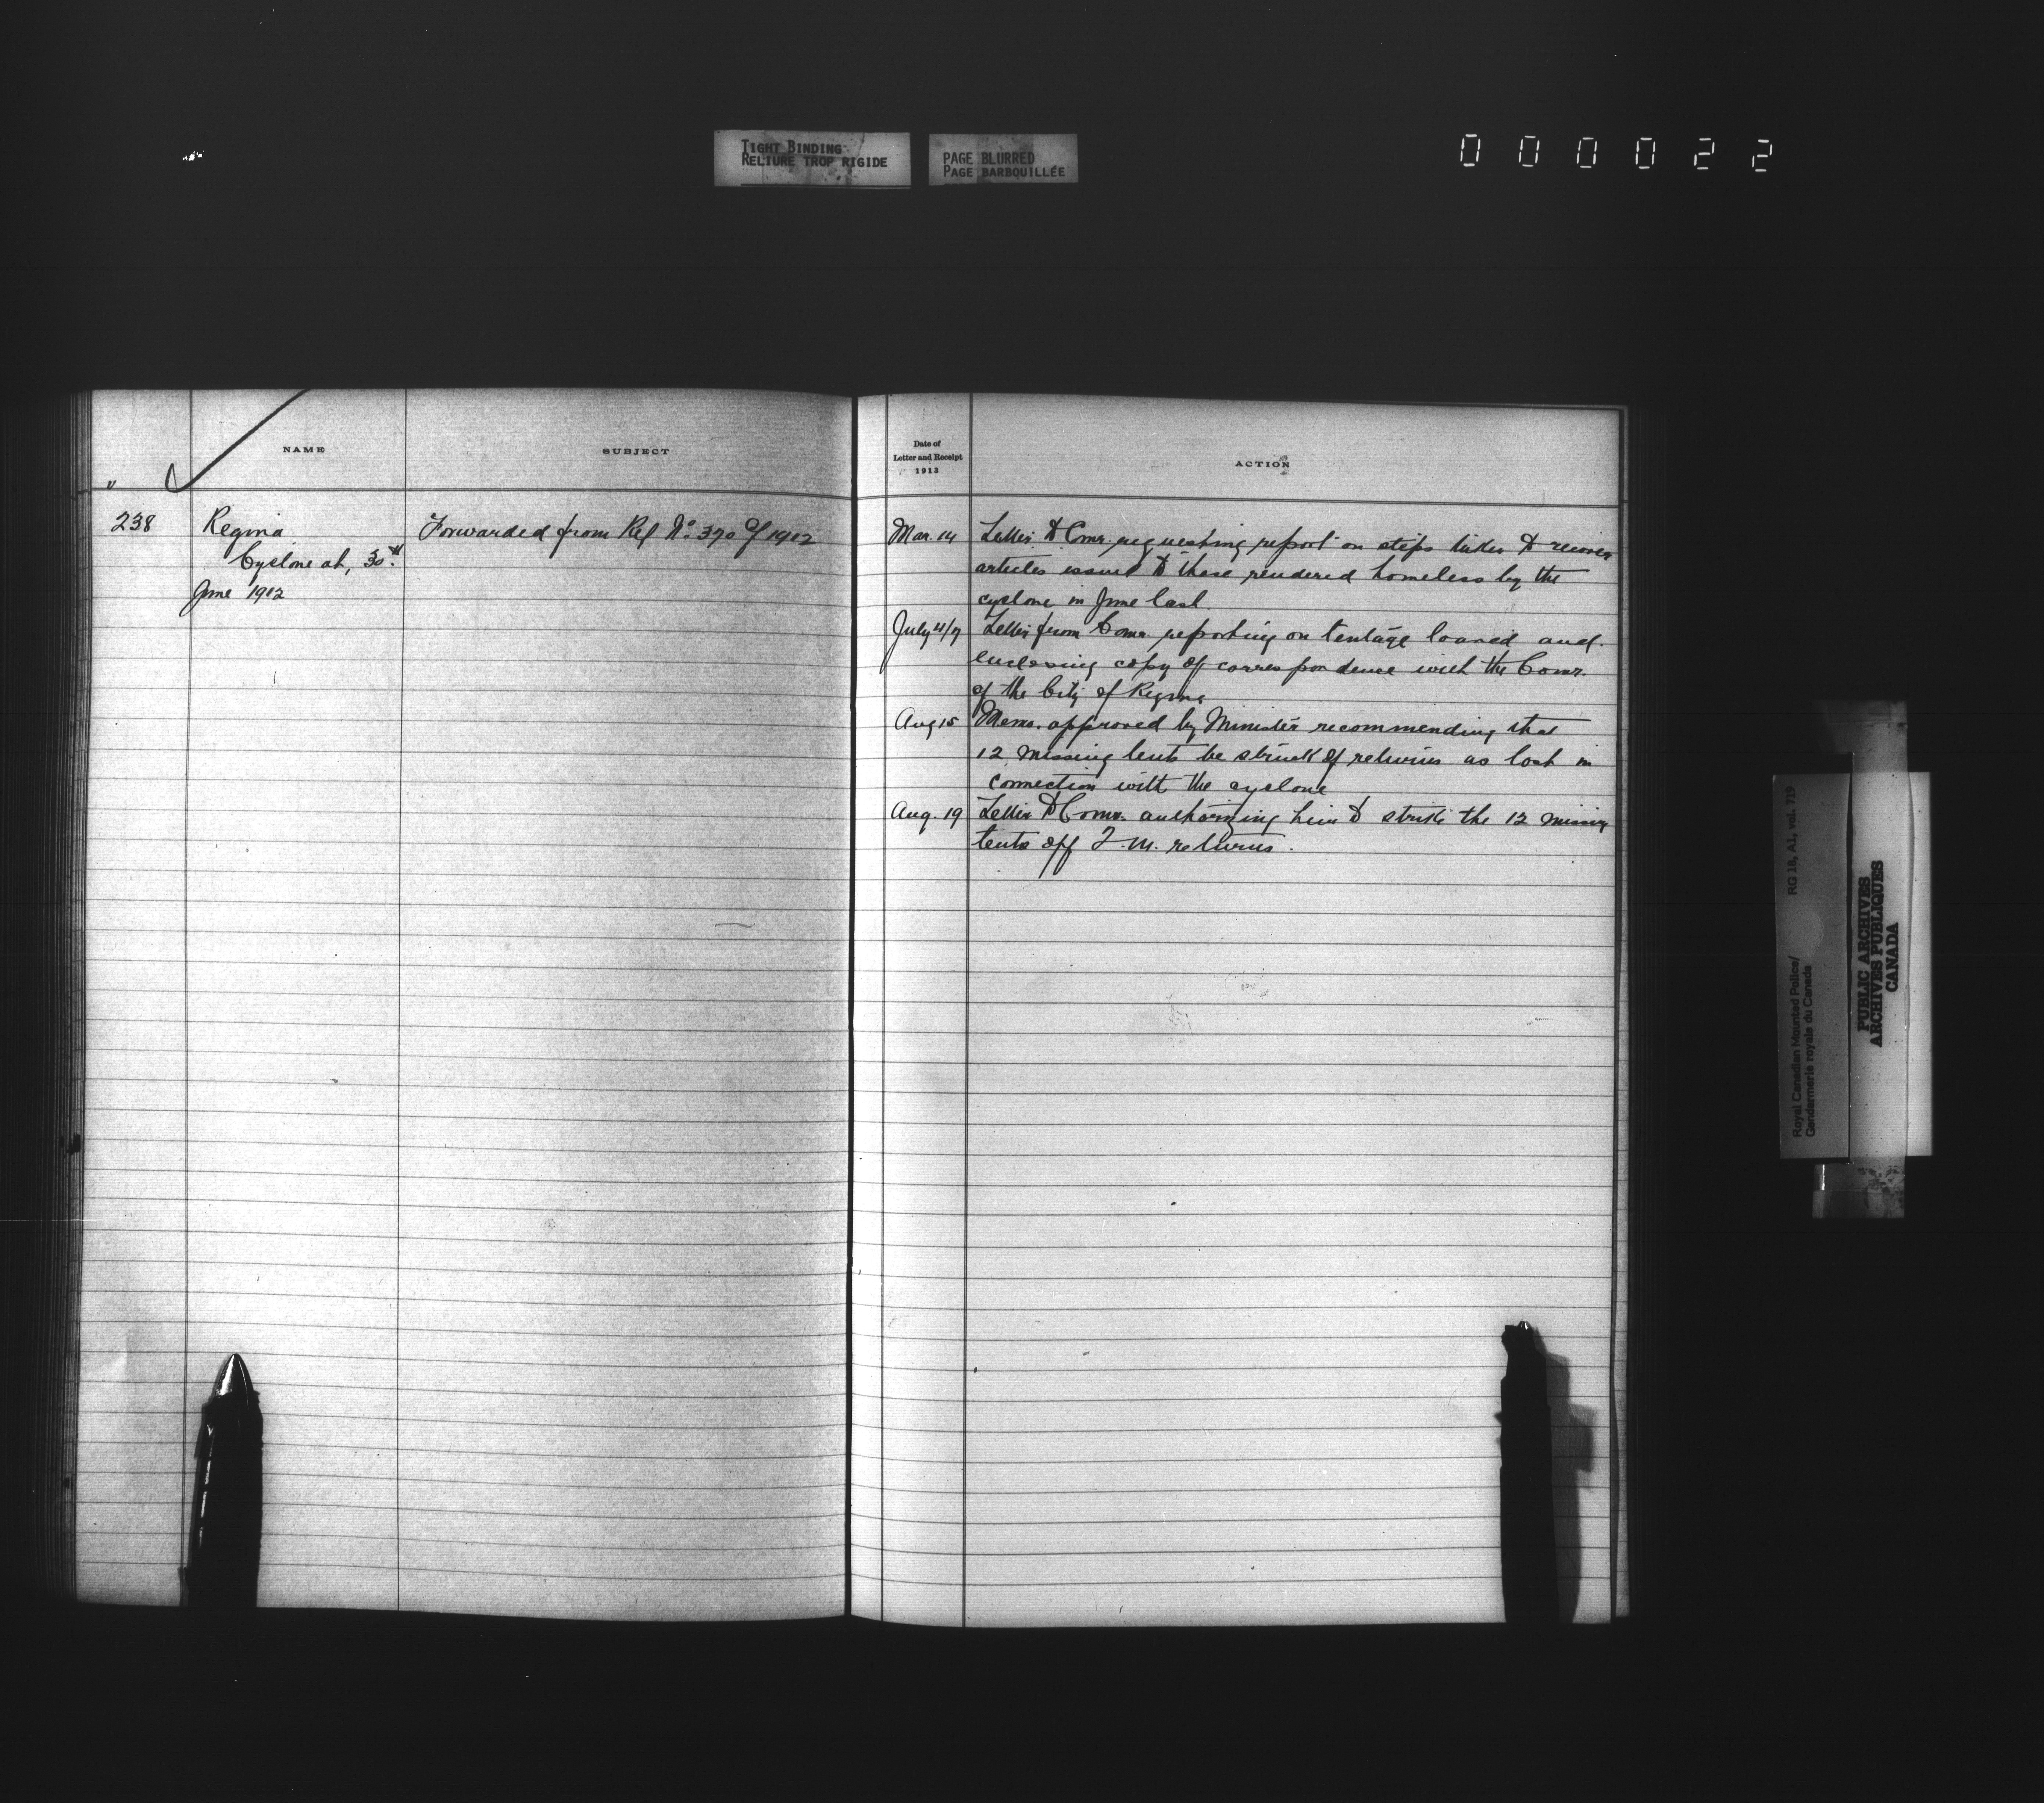 TIGHT BINDING
RELIURE TROP RIGIDE
PAGE BLURRED
PAGE BARBOUILLÉE
000022
NAME
SUBJECT
238
Regina
Cyclone at, 30th
June 1912
Forwarded from Ref No. 370 of 1912
Date of
Letter and Receipt
1913
ACTION
Mar. 14 Letter to Comr. requesting report on steps taken to recover
articles issued to those rendered homeless by the
cyclone in June last.
July 4/9 Letter from Comr. reporting on tentage loaned and
enclosing copy of correspondence with the Comr.
of the City of Regina
Aug 15 Memo. approved by Minister recommending that
12 missing tents be struck off returns as lost in
connection with the cyclone
Aug. 19 Letter to Comr. authorizing him to strike the 12 missing
tents off Q.M. returns.
Royal Canadian Mounted Police/ RG 18, A1, vol. 719
Gendarmerie royale du Canada
PUBLIC ARCHIVES
ARCHIVES PUBLIQUES
CANADA